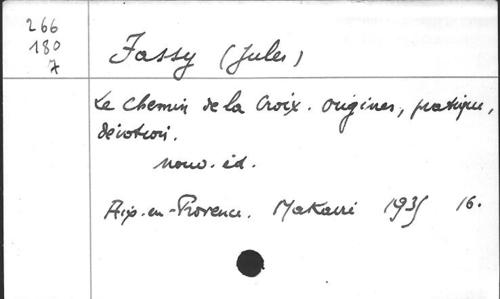 266
180
7
Fassy (Jules)
Le Chemin de la Croix. Origines, pratique,
dévotion.
nouv. éd.
Aix-en-Provence. Makaire 1935 16.